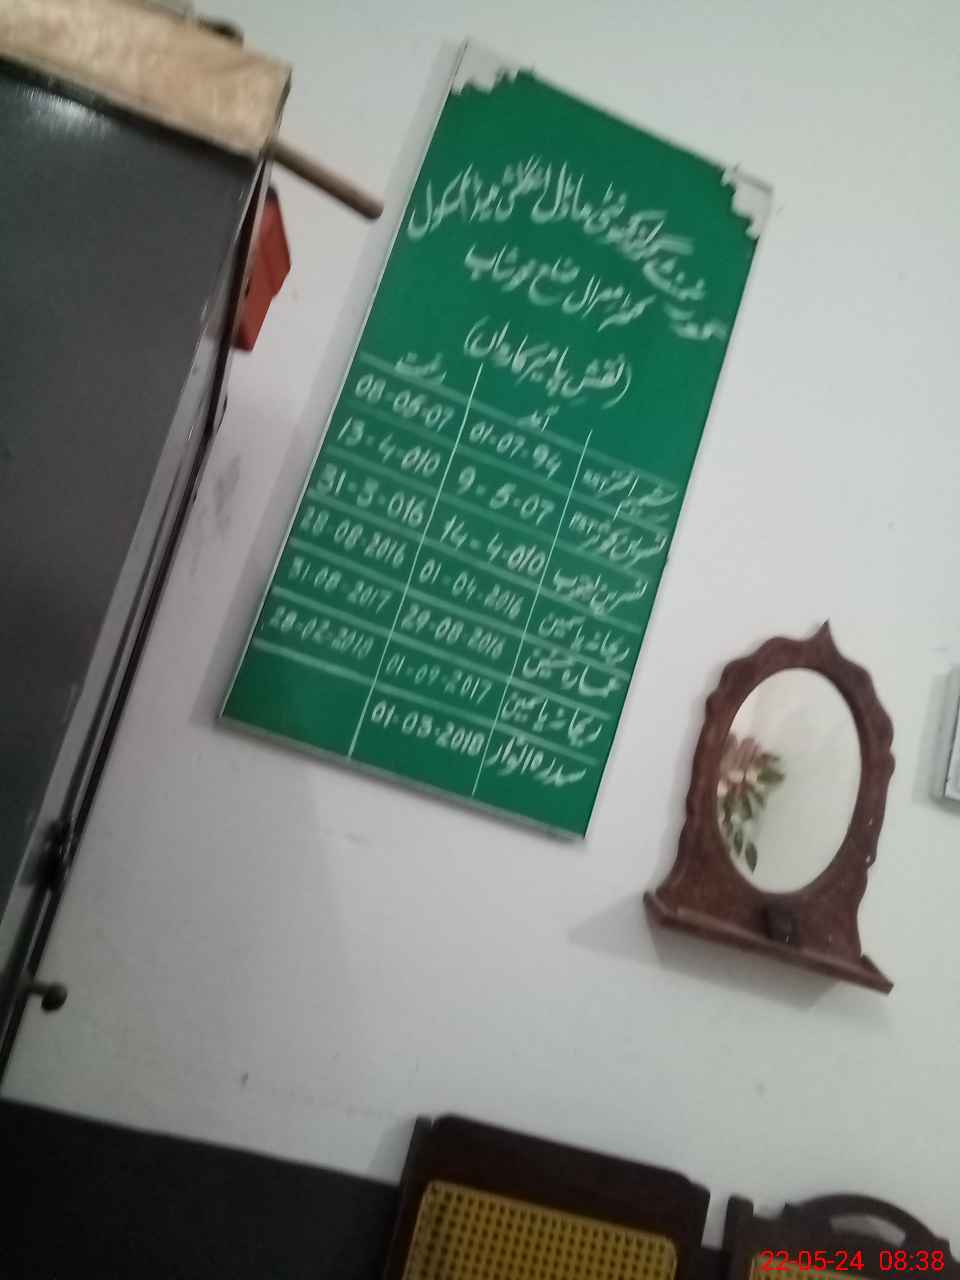 گورنمنٹ گرلز کمیونٹی ماڈل انگلش میڈیم سکول
ضلع خوشاب
(نقشِ پا میرِ کارواں)
آمد رخصت
نسیم اختر 01-07-94 08-05-07
نسرین کوثر 9-5-07 13-4-010
نسرین ایوب 14-4-010 31-3-016
ریحانہ یاسمین 01-04-2016 28-08-2016
عمارہ تحسین 29-08-2016 31-08-2017
ریحانہ یاسمین 01-09-2017 28-02-2018
سدرہ انوار 01-03-2018
22-05-24 08:38